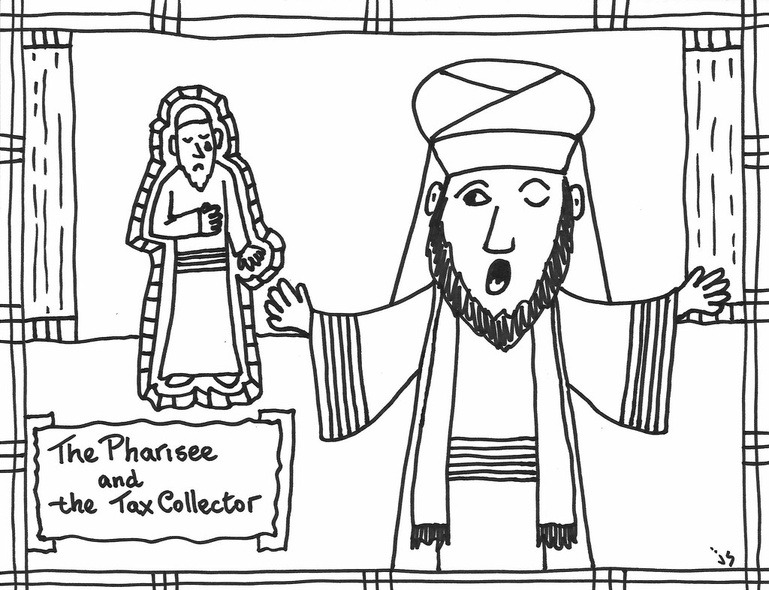 The Pharisee
and
the Tax Collector
JS